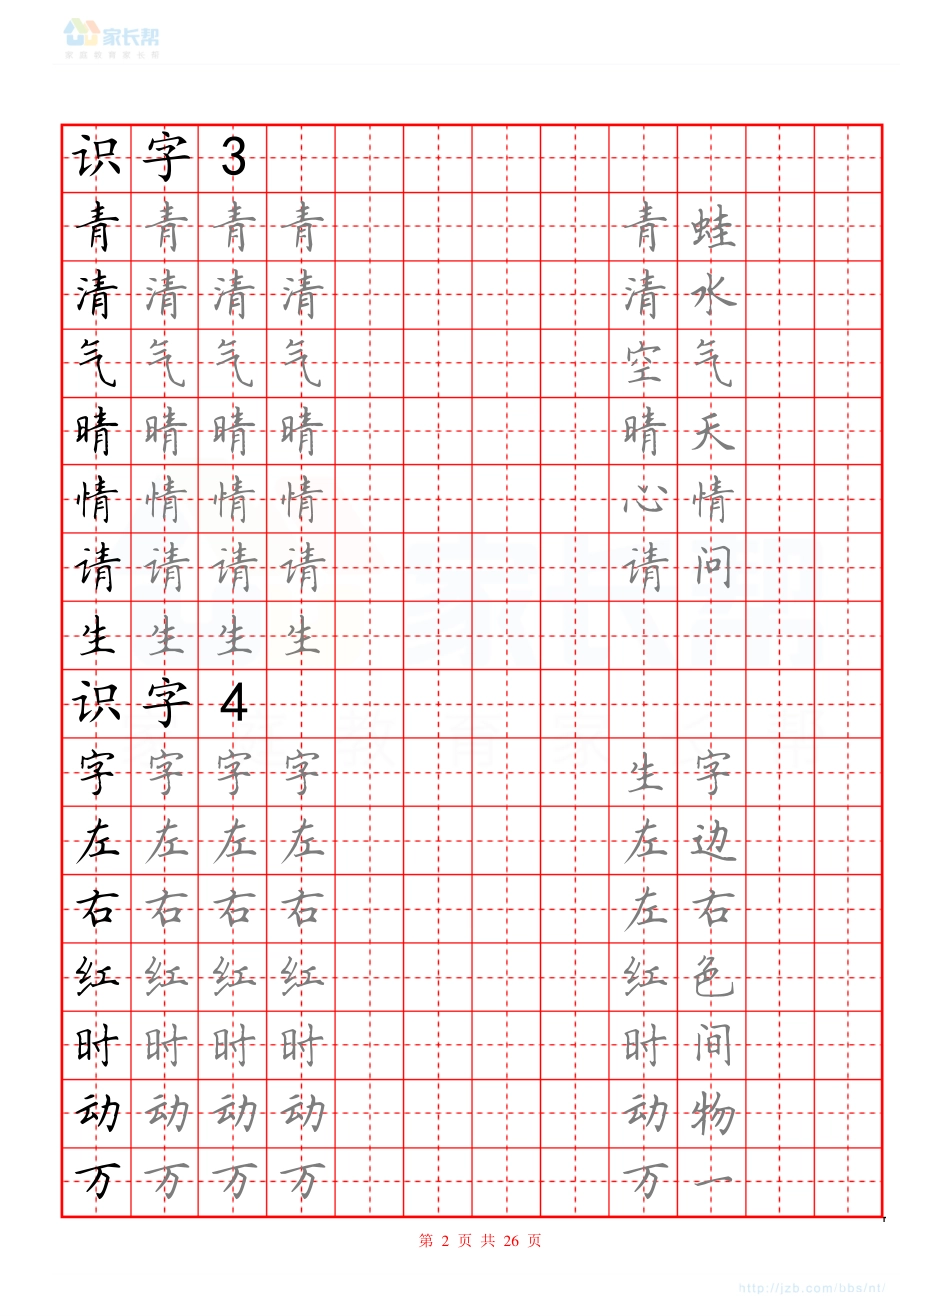 家长帮
家庭教育家长帮
识字3
青青青青青蛙
清清清清清水
气气气气空气
晴晴晴晴晴天
情情情情心情
请请请请请问
生生生生
识字4
字字字字生字
左左左左左边
右右右右左右
红红红红红色
时时时时时间
动动动动动物
万万万万万一
第 2 页 共 26 页
http://jzb.com/bbs/nf/